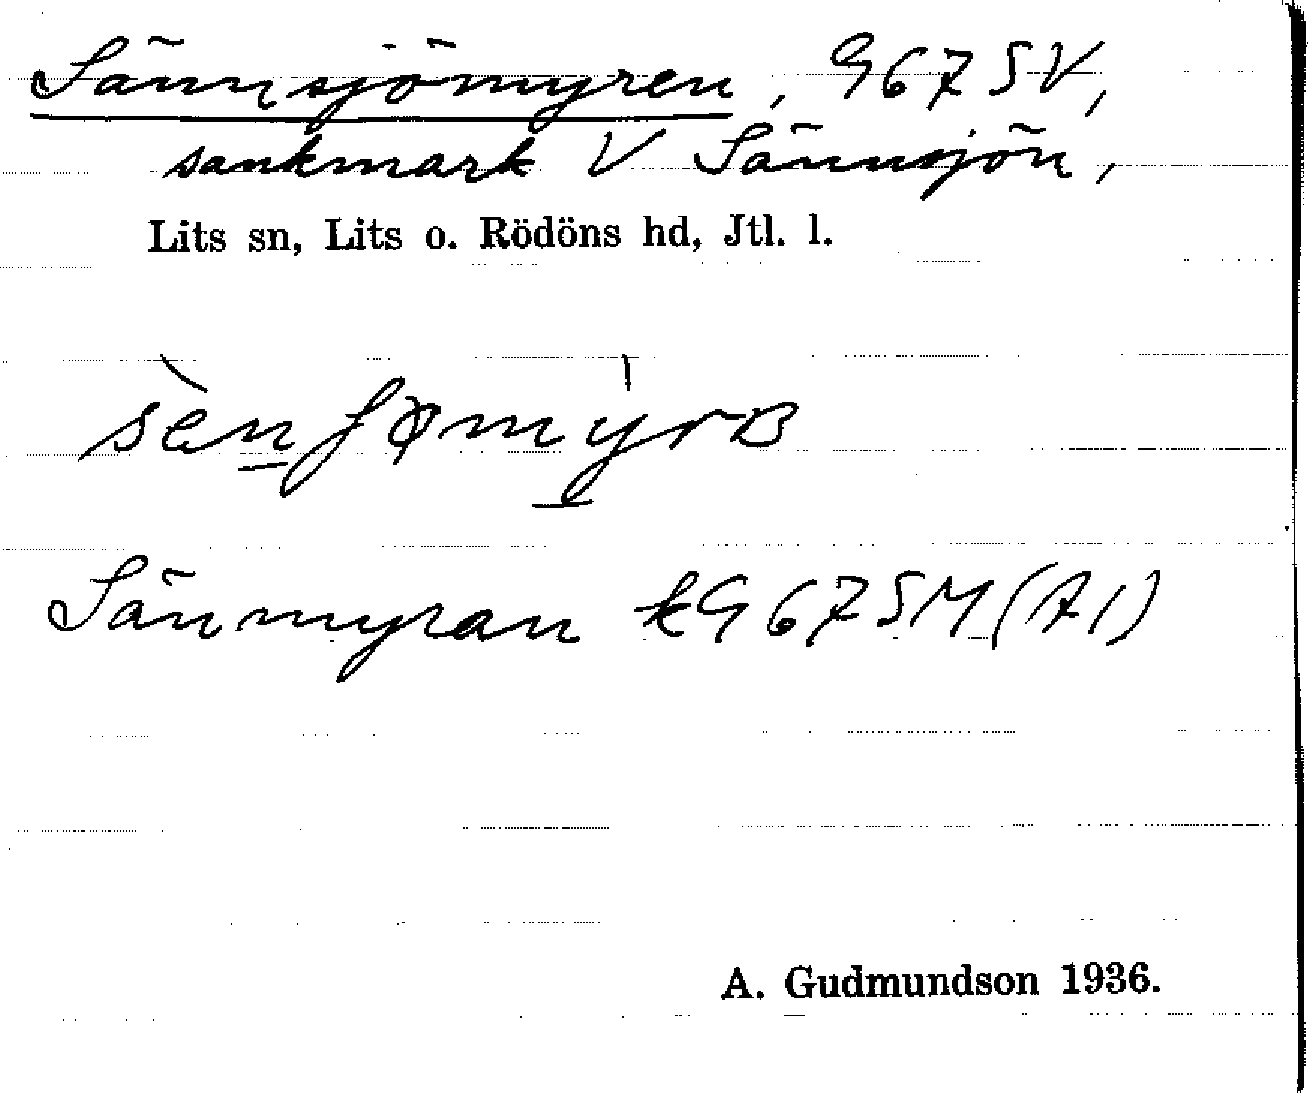 Sännsjömyren, G67SV,
sankmark V Sännsjön,
Lits sn, Lits o. Rödöns hd, Jtl. l.
Sänmyran kG67SM(A1)
A. Gudmundson 1936.